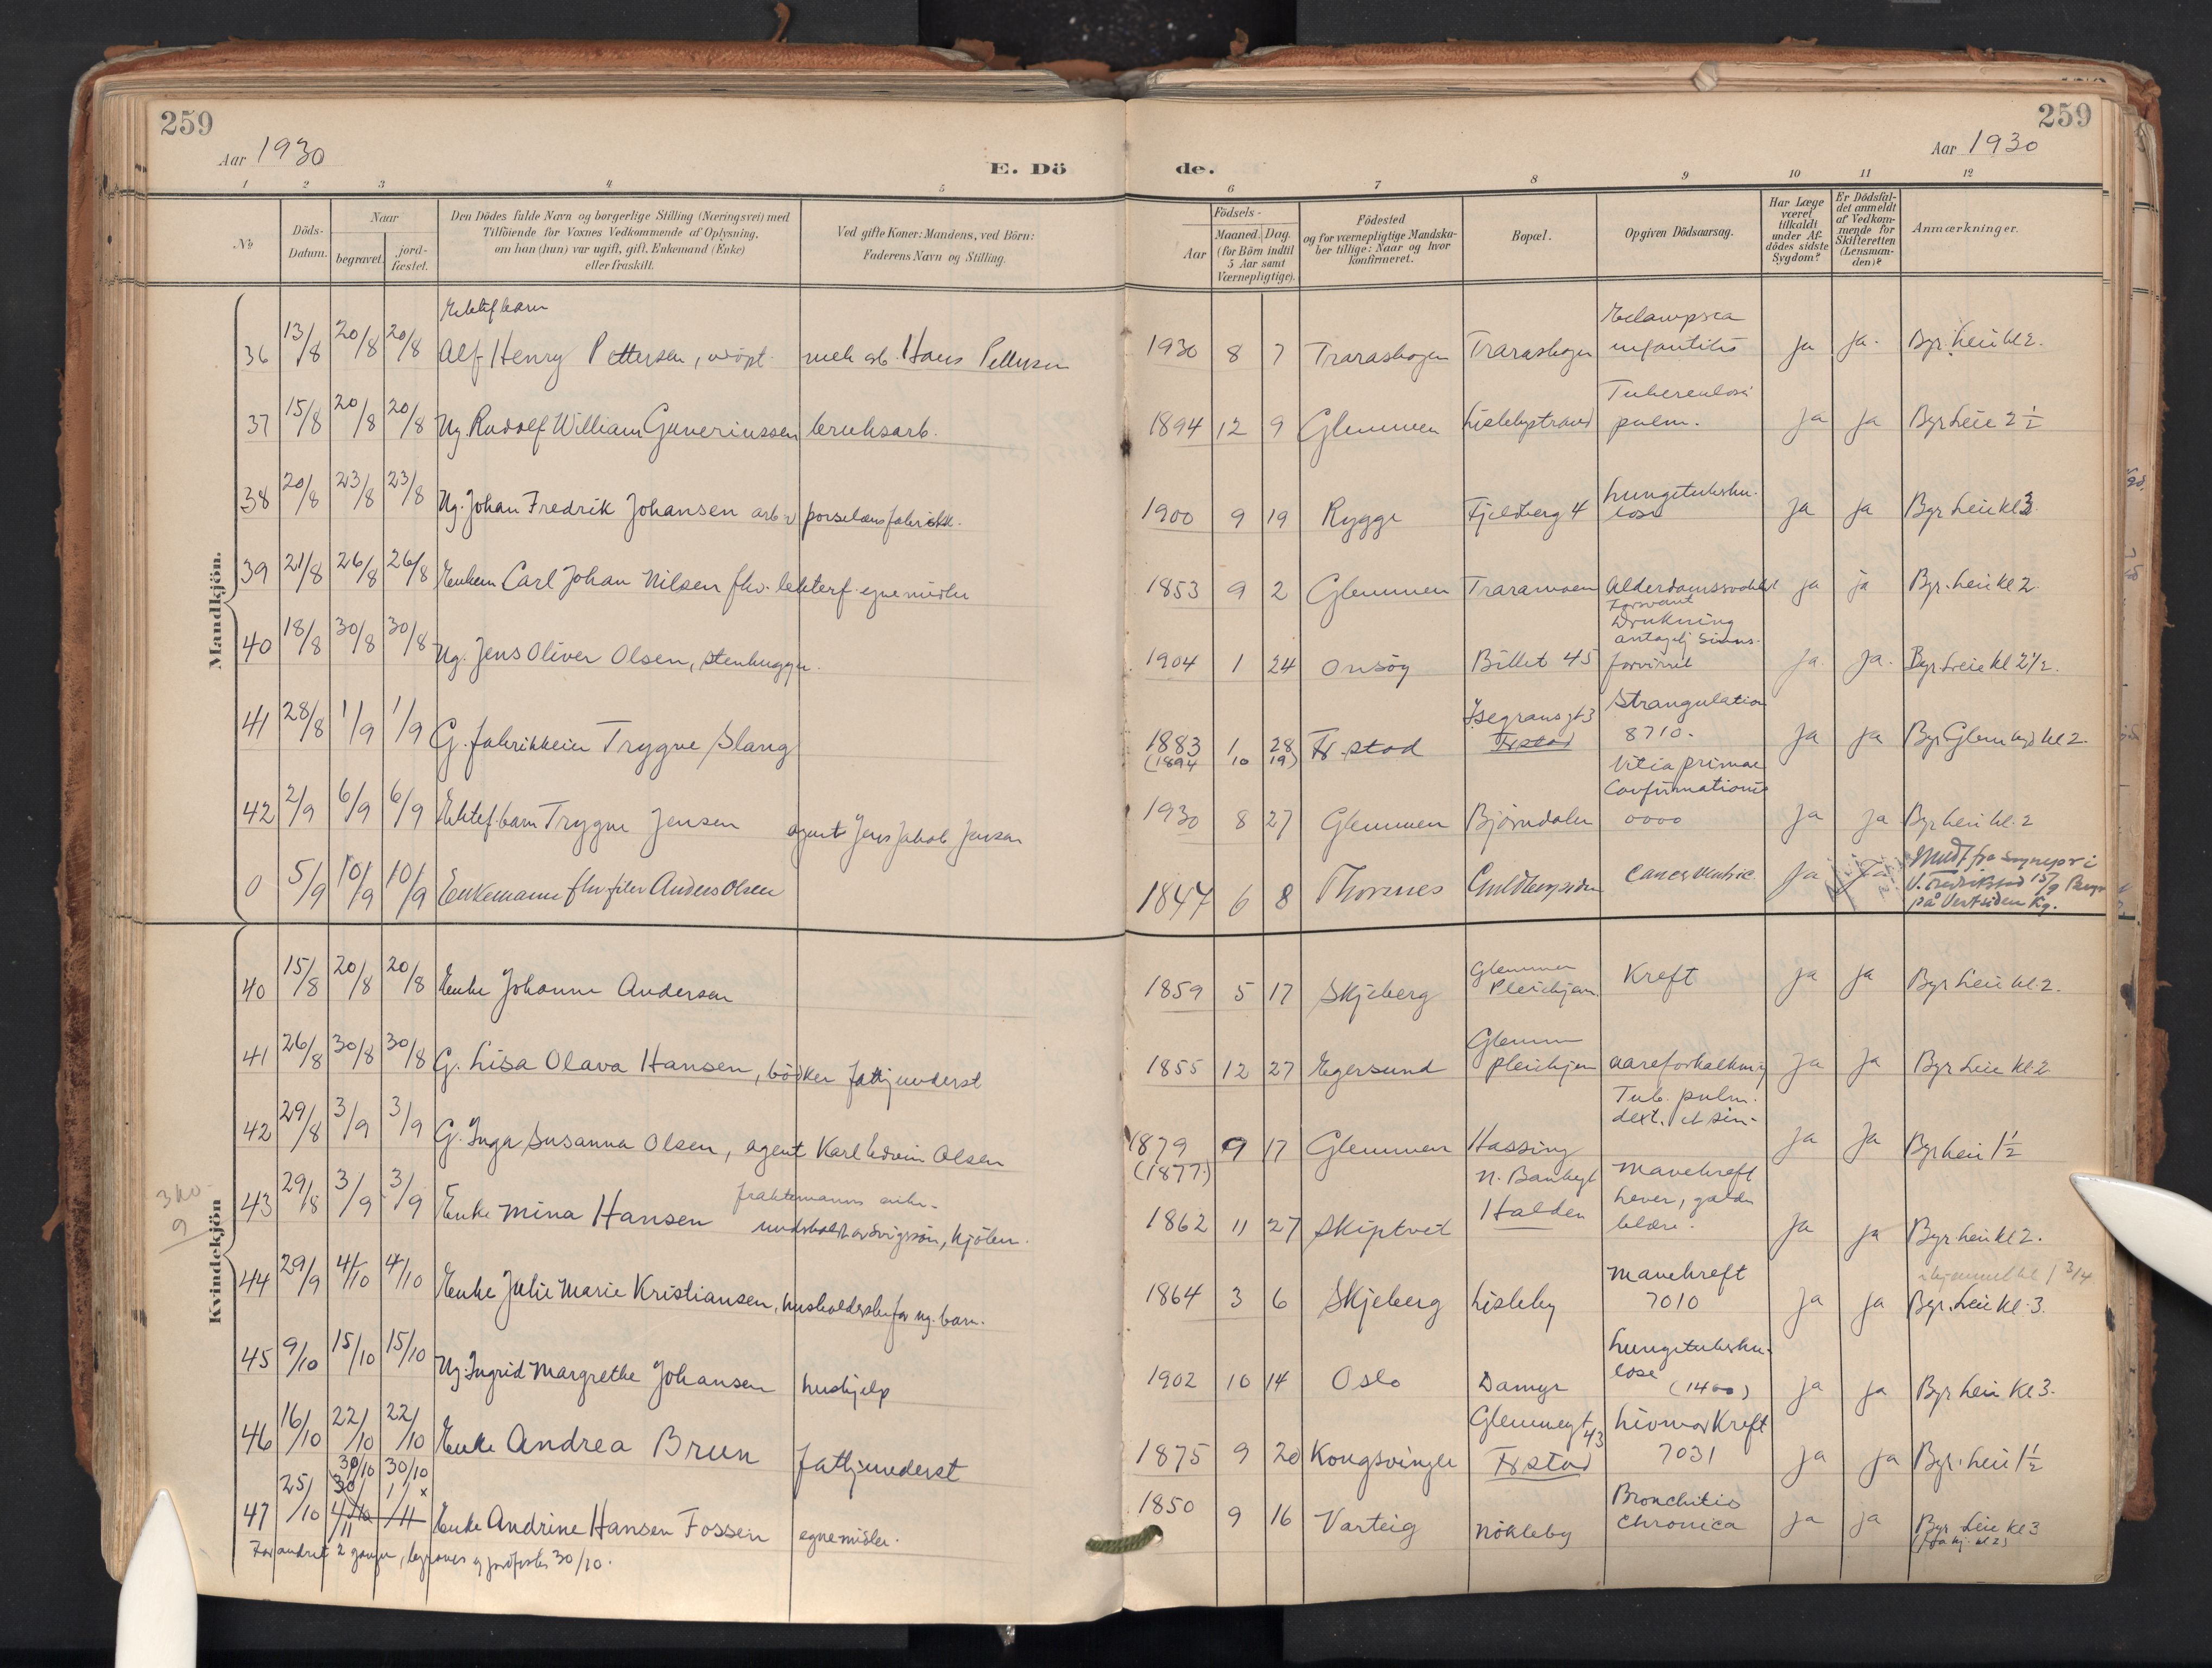 259
259
Aar 1930
Aar 1930
E. Dö
de.
1 2 3 4 5 6 7 8 9 10 11 12
No
Döds-Datum.
Naar
begravet.
jord-fæstet.
Den Dödes fulde Navn og borgerlige Stilling (Næringsvei) med
Tilföiende for Voxnes Vedkommende af Oplysning,
om han (hun) var ugift, gift, Enkemand (Enke)
eller fraskilt.
Ved gifte Koner: Mandens, ved Börn:
Faderens Navn og Stilling.
Födsels-
Aar
Maaned. Dag.
(for Börn indtil
5 Aar samt
Værnepligtige).
Födested
og for værnepligtige Mandska-
ber tillige: Naar og hvor
konfirmeret.
Bopæl.
Opgiven Dödsaarsag.
Har Læge
været
tilkaldt
under Af-
dödes sidste
Sygdom?
Er Dödsfal-
det anmeldt
af Vedkom-
mende for
Skifteretten
(Lensman-
den)?
Anmærkninger.
Mandkjön.
36 13/8 20/8 20/8 Ektef barn Alf Henry Pettersen, udöpt. mek arb. Hans Pettersen 1930 8 7 Traraskogen Traraskogen Eclampsia infantilis ja ja. Byr. Leie kl 2.
37 15/8 20/8 20/8 Ug. Rudolf William Guneriussen bruksarb. 1894 12 9 Glemmen Lislebystrand Tuberculosis pulm. ja ja Byr Leie 2 1/2
38 20/8 23/8 23/8 Ug. Johan Fredrik Johansen arb. v porselænsfabrikk. 1900 9 19 Rygge Fjeldberg 4 Lungetuberku-lose ja ja Byr Leie kl 3
39 21/8 26/8 26/8 Enkem Carl Johan Nilsen fhv. lekterf. egne midler 1853 9 2 Glemmen Traramoen Alderdomssvakhet ja ja Byr. Leie kl 2
40 18/8 30/8 30/8 Ug. Jens Oliver Olsen, stenhugger. 1904 1 24 Onsöy Billet 45 Forsvant Drukning antagelj sinns-forvirret ja ja. Byr Leie kl 2 1/2.
41 28/8 1/9 1/9 G. fabrikkeier Trygve Slang 1883 1 28 (1894 10 19) Fr.stad Isegrans gt 3 Fr.stad Strangulation 8710. ja ja Byr Glem kgd kl 2.
42 2/9 6/9 6/9 Ektef. barn Trygve Jensen agent Jens Jakob Jensen 1930 8 27 Glemmen Bjørndalen Vitia primae Conformationis 0000 ja ja Byr Leie kl. 2
0 5/9 10/9 10/9 Enkemann fhv. filer Anders Olsen 1847 6 8 Thorsnes Guldbergsiden Cancer ventric. Ja Ja Meldt fra sognepr i V. Fredrikstad 15/9 på Vestsiden Kg.
Kvindekjön
40 15/8 20/8 20/8 Enke Johanne Andersen 1859 5 17 Skjeberg Glemmen Pleiehjem. Kreft ja ja Byr Leie kl. 2.
41 26/8 30/8 30/8 G. Lisa Olava Hansen, bödker fattigunderst 1855 12 27 Egersund Glemm Pleiehjem aareforkalkning ja ja Byr Leie kl 2
42 29/8 3/9 3/9 G. Inga Susanna Olsen, agent Karl Edvin Olsen 1879 (1877.) 9 17 Glemmen Hassing Tub. pulm. dext. et sin. ja ja Byr Leie 1 1/2
3 no. 9
43 29/8 3/9 3/9 Enke Mina Hansen fraktemanns enke. underholdt av svigersön, Kjölen. 1862 11 27 Skiptvet N. Bankegt Halden Mavekreft lever, galde blære. ja ja Byr Leie kl 2.
44 29/9 4/10 4/10 Enke Julie Marie Kristiansen, husholderske for ug. barn. 1864 3 6 Skjeberg Lisleby Mavekreft 7010 ja ja i hjemmet kl 1 3/4 Byr. Leie kl. 3.
45 9/10 15/10 15/10 Ug. Ingrid Margrethe Johansen hushjelp 1902 10 14 Oslo Damyr Lungetuberku-lose (1400) ja ja Byr Leie kl 3.
46 16/10 22/10 22/10 Enke Andrea Brun fattigunderst 1875 9 20 Kongsvinger Glemmengt 43 Fr.stad Livmorkreft 7031 ja ja Byr. Leie 1 1/2
47 25/10 30/10 30/10 Enke Andrine Hansen Fossen egne midler. 1850 9 16 Varteig Nökleby Bronchitis Chronica ja ja Byr Leie kl 3
Forandret 2 ganger, begraves og jordfestes 30/10.